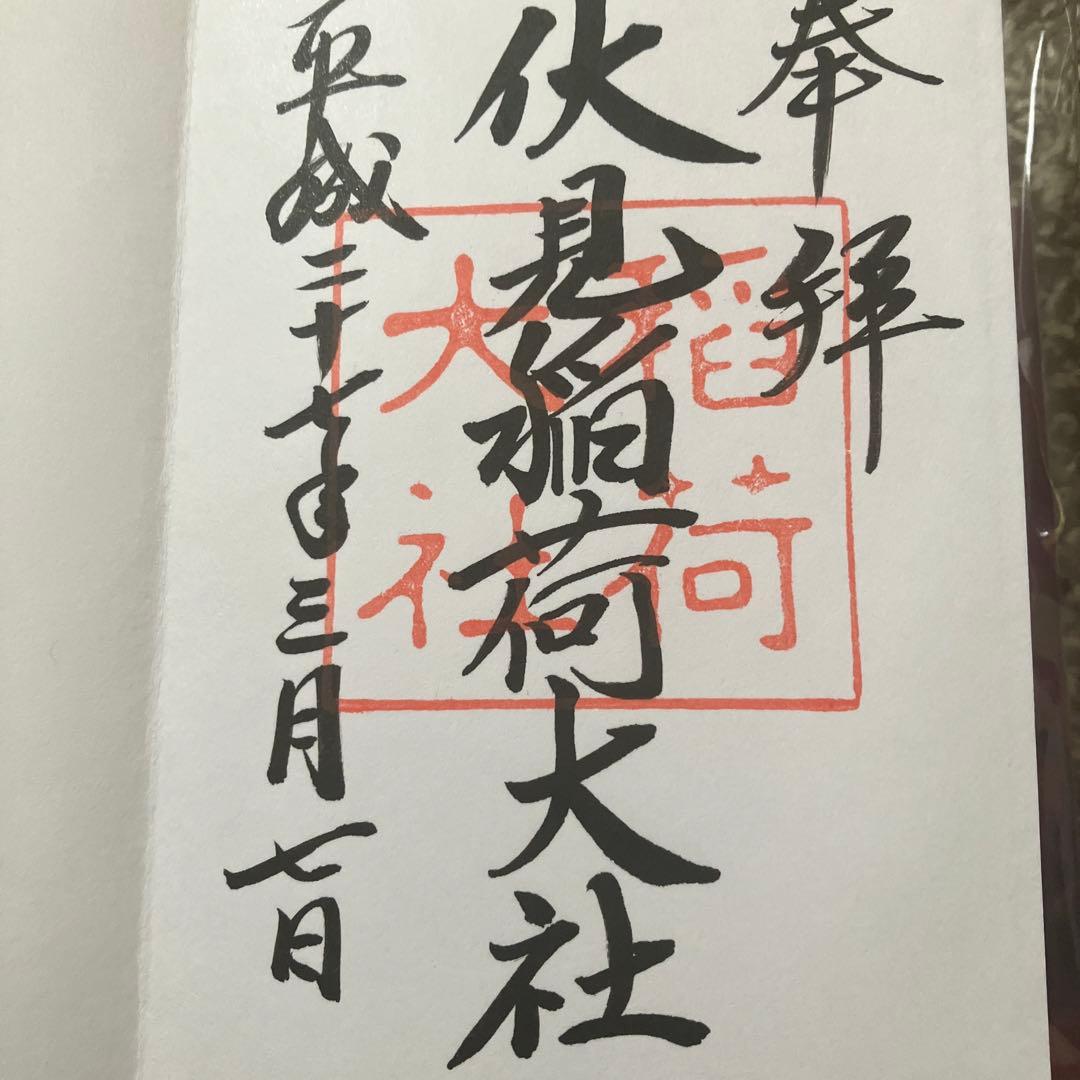 奉拝
伏見稲荷大社
稲荷
大社
平成二十七年三月七日